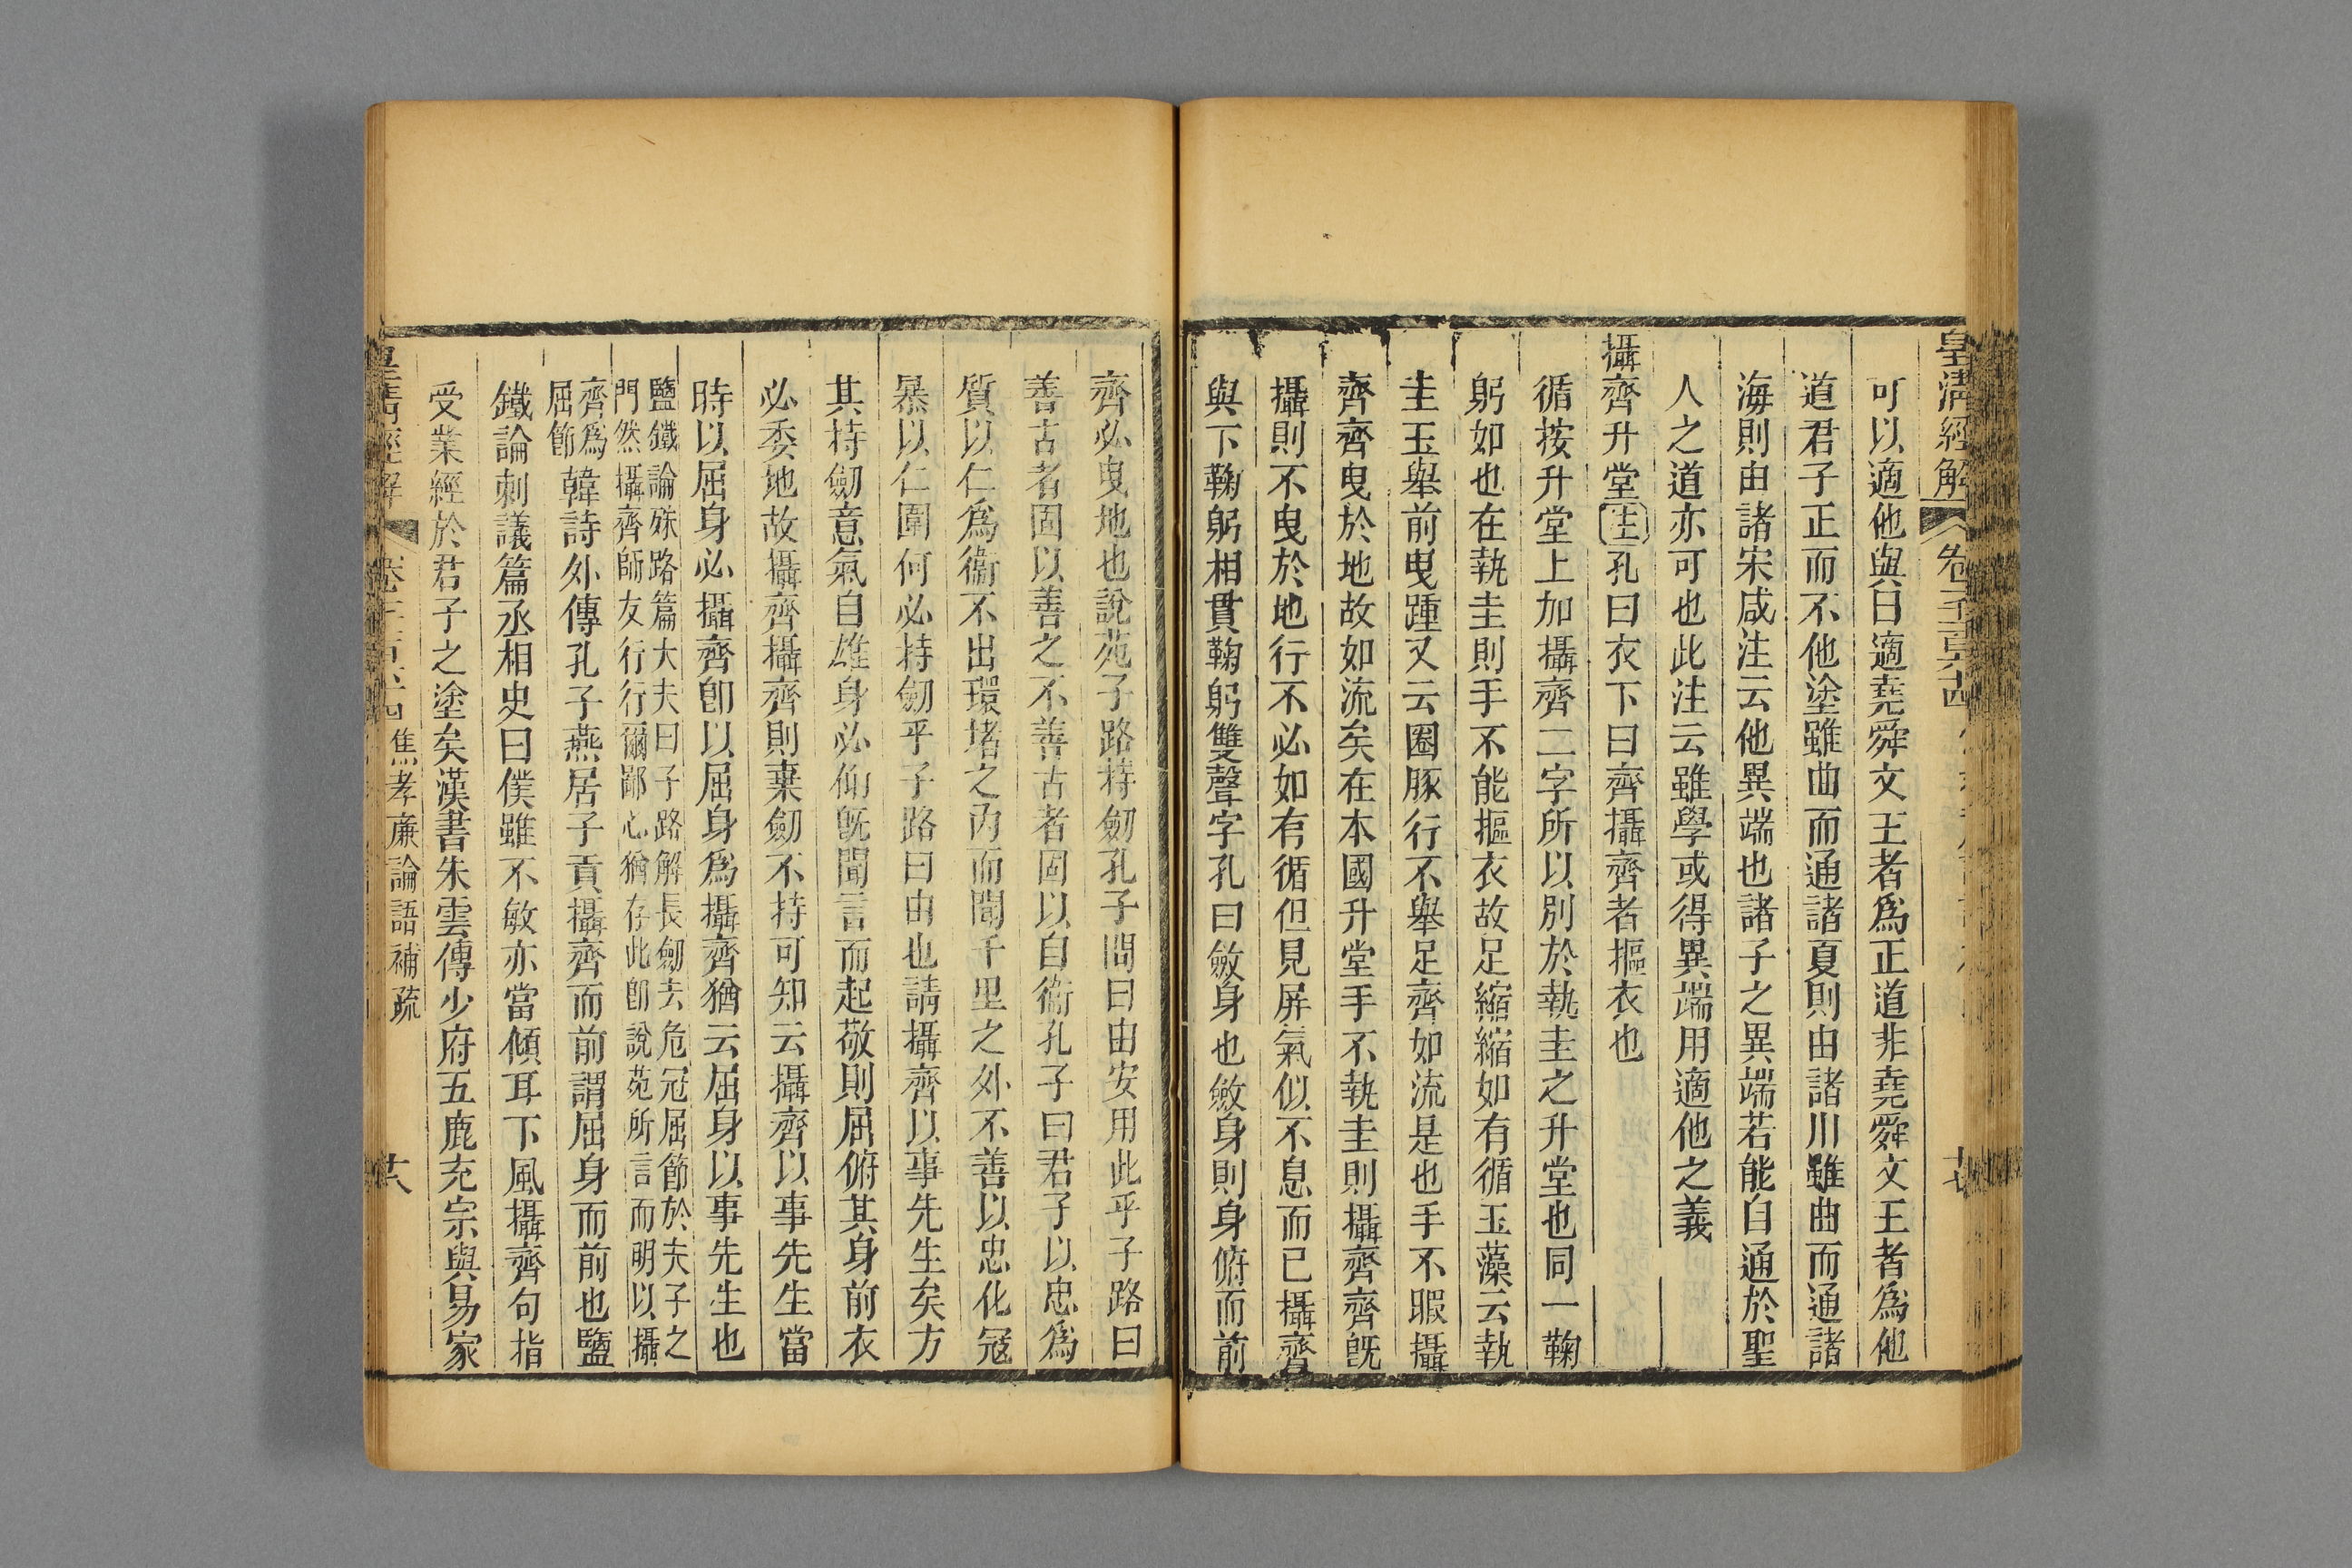 皇清經解
卷千一百六十四
十七
可以適他與曰適堯舜文王者爲正道非堯舜文王者爲他
道君子正而不他塗雖曲而通諸夏則由諸川雖曲而通諸
海則由諸宋咸注云他異端也諸子之異端若能自通於聖
人之道亦可也此注云雖學或得異端用適他之義
攝齊升堂注孔曰衣下曰齊攝齊者摳衣也
循按升堂上加攝齊二字所以別於執圭之升堂也同一鞠
躬如也在執圭則手不能摳衣故足縮縮如有循玉藻云執
圭玉舉前曳踵又云圈豚行不舉足齊如流是也手不暇攝
齊齊曳於地故如流矣在本國升堂手不執圭則攝齊齊既
攝則不曳於地行不必如有循但見屏氣似不息而已攝齊
與下鞠躬相貫鞠躬雙聲字孔曰斂身也斂身則身俯而前
齊必曳地也說苑子路持劒孔子問曰由安用此乎子路曰
善古者固以善之不善古者固以自衞孔子曰君子以忠爲
質以仁爲衞不出環堵之內而聞千里之外不善以忠化寇
暴以仁圍何必持劒乎子路曰由也請攝齊以事先生矣方
其持劒意氣自雄身必仰旣聞言而起敬則屈俯其身前衣
必委地故攝齊攝齊則棄劒不持可知云攝齊以事先生當
時以屈身必攝齊卽以屈身爲攝齊猶云屈身以事先生也
鹽鐵論殊路篇大夫曰子路解長劒去危冠屈節於夫子之
門然攝齊師友行行爾鄙心猶存此卽說苑所言而明以攝
齊爲
屈節
韓詩外傳孔子燕居子貢攝齊而前謂屈身而前也鹽
鐵論刺議篇丞相史曰僕雖不敏亦當傾耳下風攝齊句指
受業經於君子之塗矣漢書朱雲傳少府五鹿充宗與易家
皇清經解
卷千一百六十四
焦孝廉論語補疏
十八